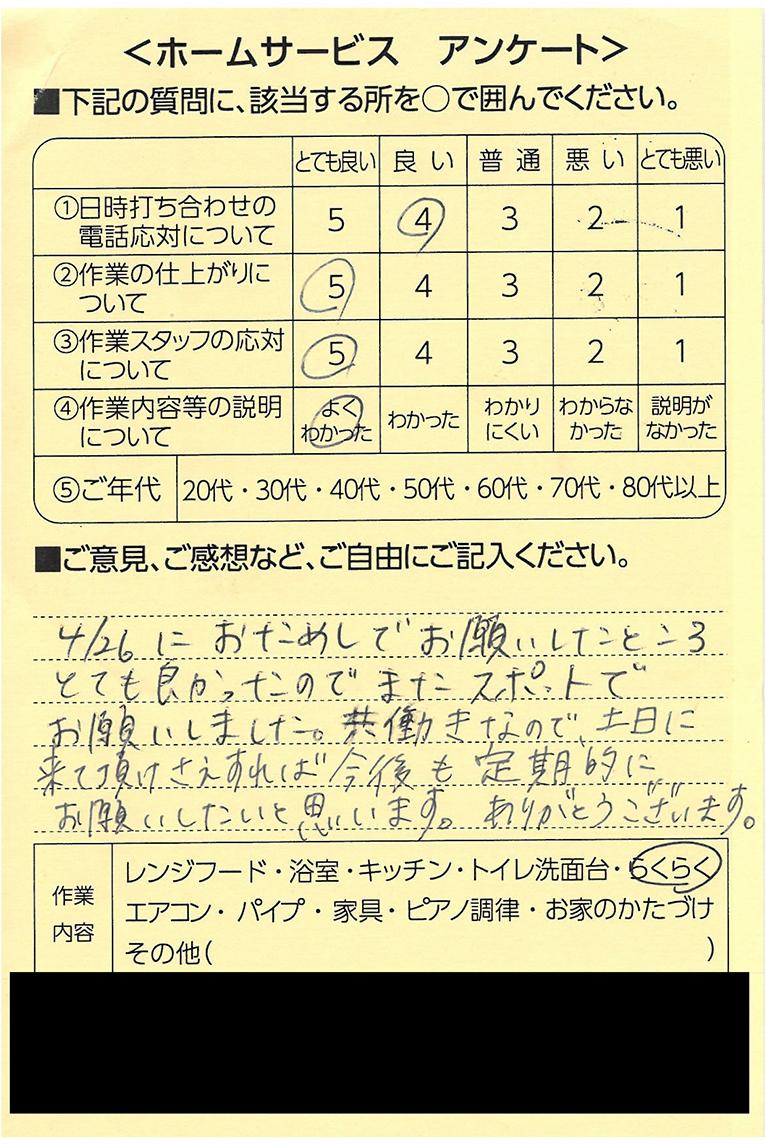 <ホームサービス アンケート>
■下記の質問に、該当する所を○で囲んでください。
とても良い 良い 普通 悪い とても悪い
①日時打ち合わせの
電話応対について 5 4 3 2 1
②作業の仕上がりに
ついて 5 4 3 2 1
③作業スタッフの応対
について 5 4 3 2 1
④作業内容等の説明
について よくわかった わかった わかりにくい わからなかった 説明がなかった
⑤ご年代 20代・30代・40代・50代・60代・70代・80代以上
■ご意見、ご感想など、ご自由にご記入ください。
4/26に おためしで お願いしたところ
とても良かったのでまたスポットで
お願いしました。共働きなので、土日に
来て頂けさえすれば今後も定期的に
お願いしたいと思います。ありがとうございます。
作業
内容
レンジフード・浴室・キッチン・トイレ洗面台・らくらく
エアコン・パイプ・家具・ピアノ調律・お家のかたづけ
その他( )